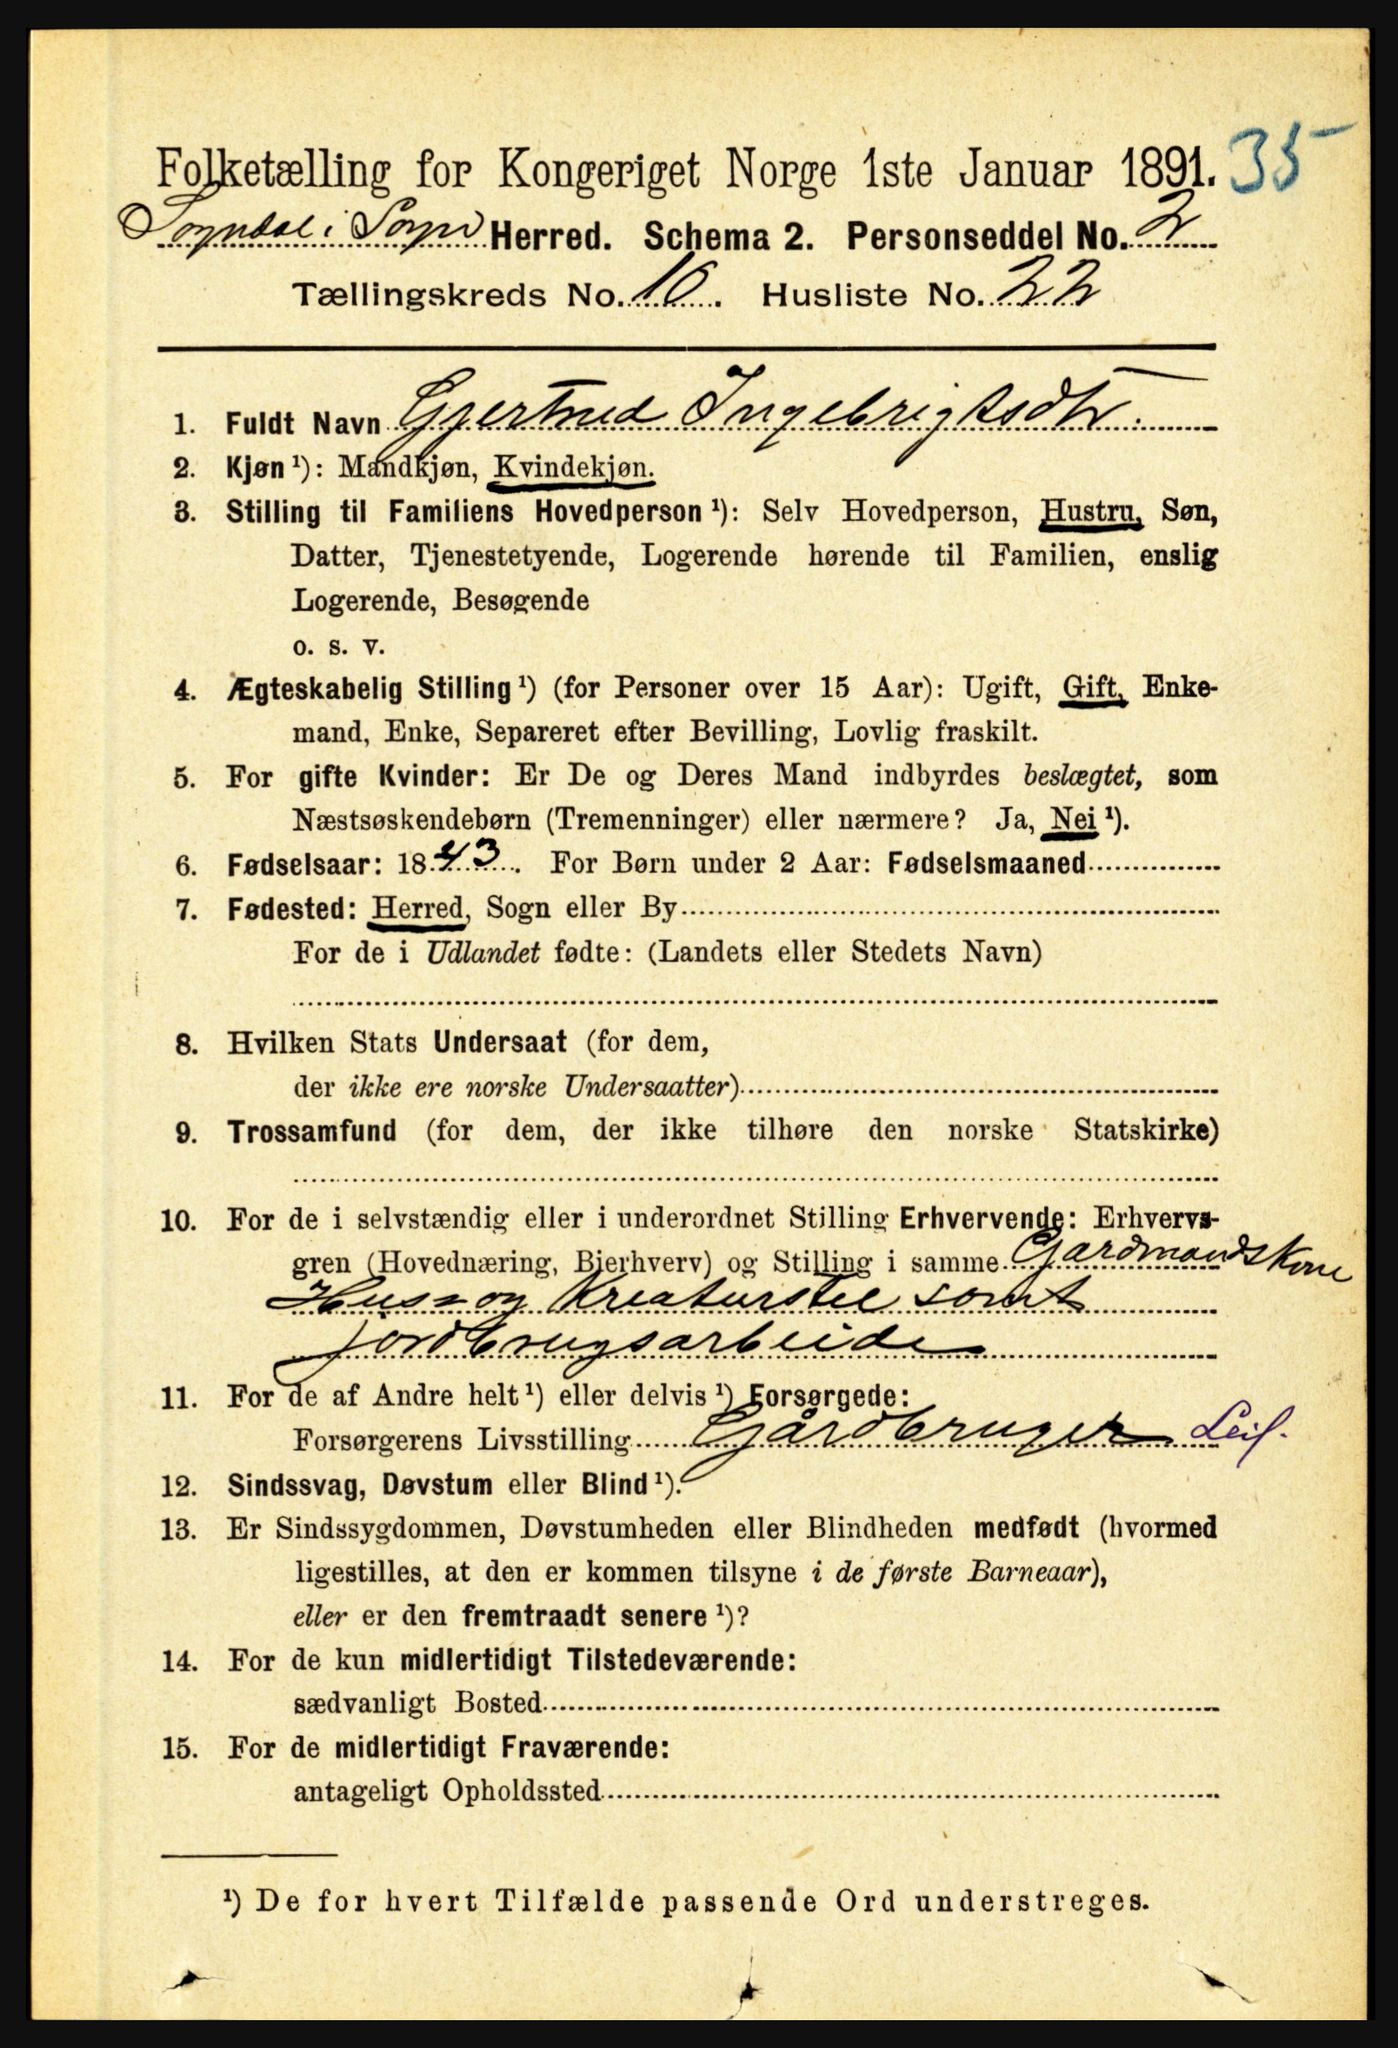 Folketælling for Kongeriget Norge 1ste Januar 1891. 35
Sogndal i Sogn Herred. Schema 2. Personseddel No. 2
Tællingskreds No. 10. Husliste No. 22
1. Fuldt Navn Gjertrud Ingebrigtsdtr.
2. Kjøn ¹): Mandkjøn, Kvindekjøn.
3. Stilling til Familiens Hovedperson ¹): Selv Hovedperson, Hustru, Søn,
Datter, Tjenestetyende, Logerende hørende til Familien, enslig
Logerende, Besøgende
o. s. v.
4. Ægteskabelig Stilling ¹) (for Personer over 15 Aar): Ugift, Gift, Enke-
mand, Enke, Separeret efter Bevilling, Lovlig fraskilt.
5. For gifte Kvinder: Er De og Deres Mand indbyrdes beslægtet, som
Næstsøskendebørn (Tremenninger) eller nærmere? Ja, Nei ¹).
6. Fødselsaar: 1843. For Børn under 2 Aar: Fødselsmaaned
7. Fødested: Herred, Sogn eller By
For de i Udlandet fødte: (Landets eller Stedets Navn)
8. Hvilken Stats Undersaat (for dem,
der ikke ere norske Undersaatter)
9. Trossamfund (for dem, der ikke tilhøre den norske Statskirke)
10. For de i selvstændig eller i underordnet Stilling Erhvervende: Erhvervs-
gren (Hovednæring, Bierhverv) og Stilling i samme Gardmandskone
Hus- og Kreaturstel samt
jordbrugsarbeide
11. For de af Andre helt ¹) eller delvis ¹) Forsørgede:
Forsørgerens Livsstilling Gårdbruger Leil.
12. Sindssvag, Døvstum eller Blind ¹).
13. Er Sindssygdommen, Døvstumheden eller Blindheden medfødt (hvormed
ligestilles, at den er kommen tilsyne i de første Barneaar),
eller er den fremtraadt senere ¹)?
14. For de kun midlertidigt Tilstedeværende:
sædvanligt Bosted
15. For de midlertidigt Fraværende:
antageligt Opholdssted
¹) De for hvert Tilfælde passende Ord understreges.